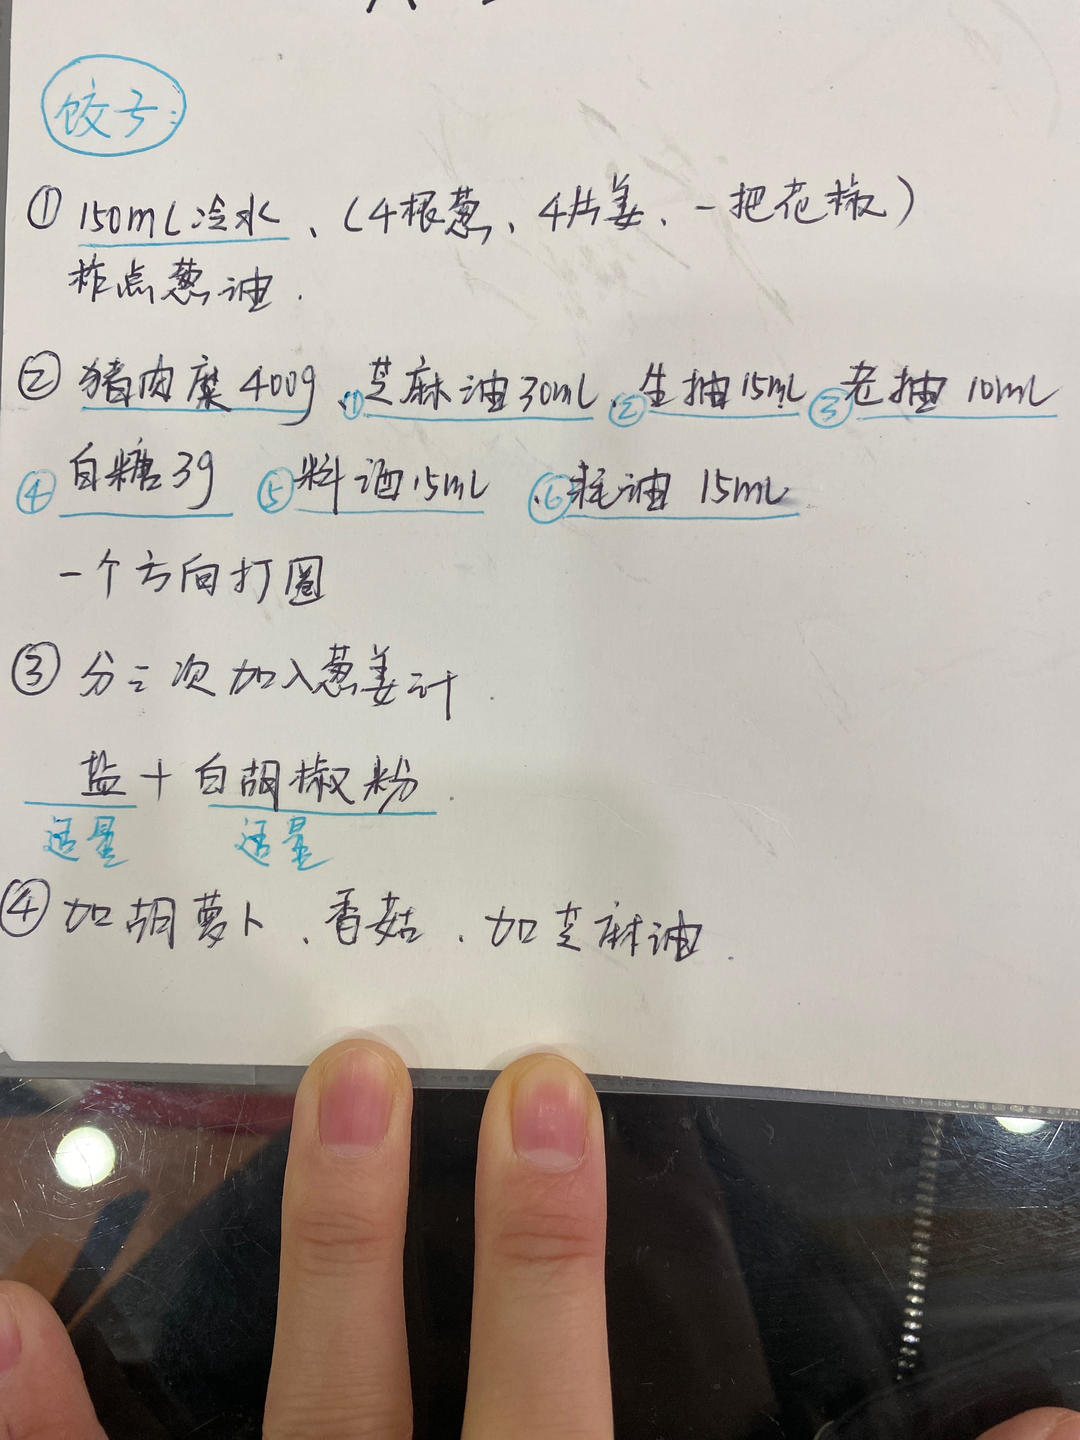 饺子:
① 150mL冷水、(4根葱、4片姜、一把花椒)
炸点葱油.
② 猪肉糜400g、①芝麻油30mL、②生抽15mL③老抽 10mL
④白糖3g ⑤料酒15mL ⑥耗油 15mL
一个方向打圈
③ 分三次加入葱姜汁.
盐+白胡椒粉.
适量 适量
④ 加胡萝卜、香菇、加芝麻油.